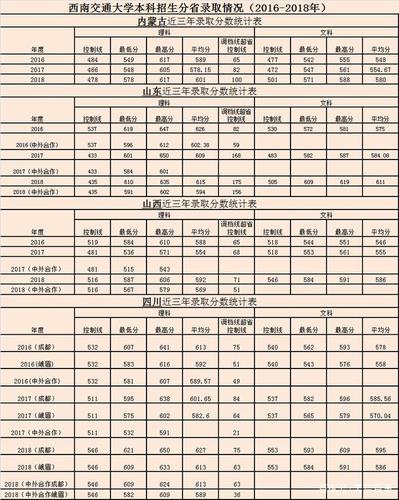 西南交通大学本科招生分省录取情况（2016-2018年）
内蒙古近三年录取分数统计表
理科 文科
年度 控制线 最低分 最高分 平均分 调档线超省控制线 控制线 最低分 最高分 平均分
2016 484 549 617 589 65 477 542 555 548
2017 466 548 605 578.15 82 472 547 561 554.67
2018 478 578 617 601 100 501 571 588 580
山东近三年录取分数统计表
理科 文科
年度 控制线 最低分 最高分 平均分 调档线超省控制线 控制线 最低分 最高分 平均分
2016 537 619 647 626 82 530 572 581 575
2016(中外合作) 537 596 612 602.38 59
2017 433 601 650 609 168 483 582 587 584.08
2017（中外合作） 433 584 601
2018 435 610 635 615 175 505 609 619 611
2018（中外合作） 435 591 602 594 156
山西近三年录取分数统计表
理科 文科
年度 控制线 最低分 最高分 平均分 调档线超省控制线 控制线 最低分 最高分 平均分
2016 519 584 610 588 65 518 544 551 546
2017 481 536 571 554 68 518 553 561 555
2017（中外合作） 481 515 543
2018 516 587 606 592 71 546 584 591 586
2018（中外合作） 516 567 579 569 51
四川近三年录取分数统计表
理科 文科
年度 控制线 最低分 最高分 平均分 调档线超省控制线 控制线 最低分 最高分 平均分
2016（成都） 532 607 641 613 75 540 562 593 578
2016(峨眉) 532 583 616 592 51 540 543 576 558
2016(中外合作) 532 581 607 589.57 49
2017（成都） 511 595 638 601.65 84 537 582 596 585.56
2017（峨眉） 511 575 602 582.6 64 537 565 579 570.04
2017（中外合作） 511 532 591 21
2018（成都） 546 621 650 627 75 553 593 609 595
2018（峨眉） 546 609 633 613 63 553 584 591 586
2018（中外合作成都） 546 609 624 613 63
2018（中外合作峨眉） 546 582 609 589 36